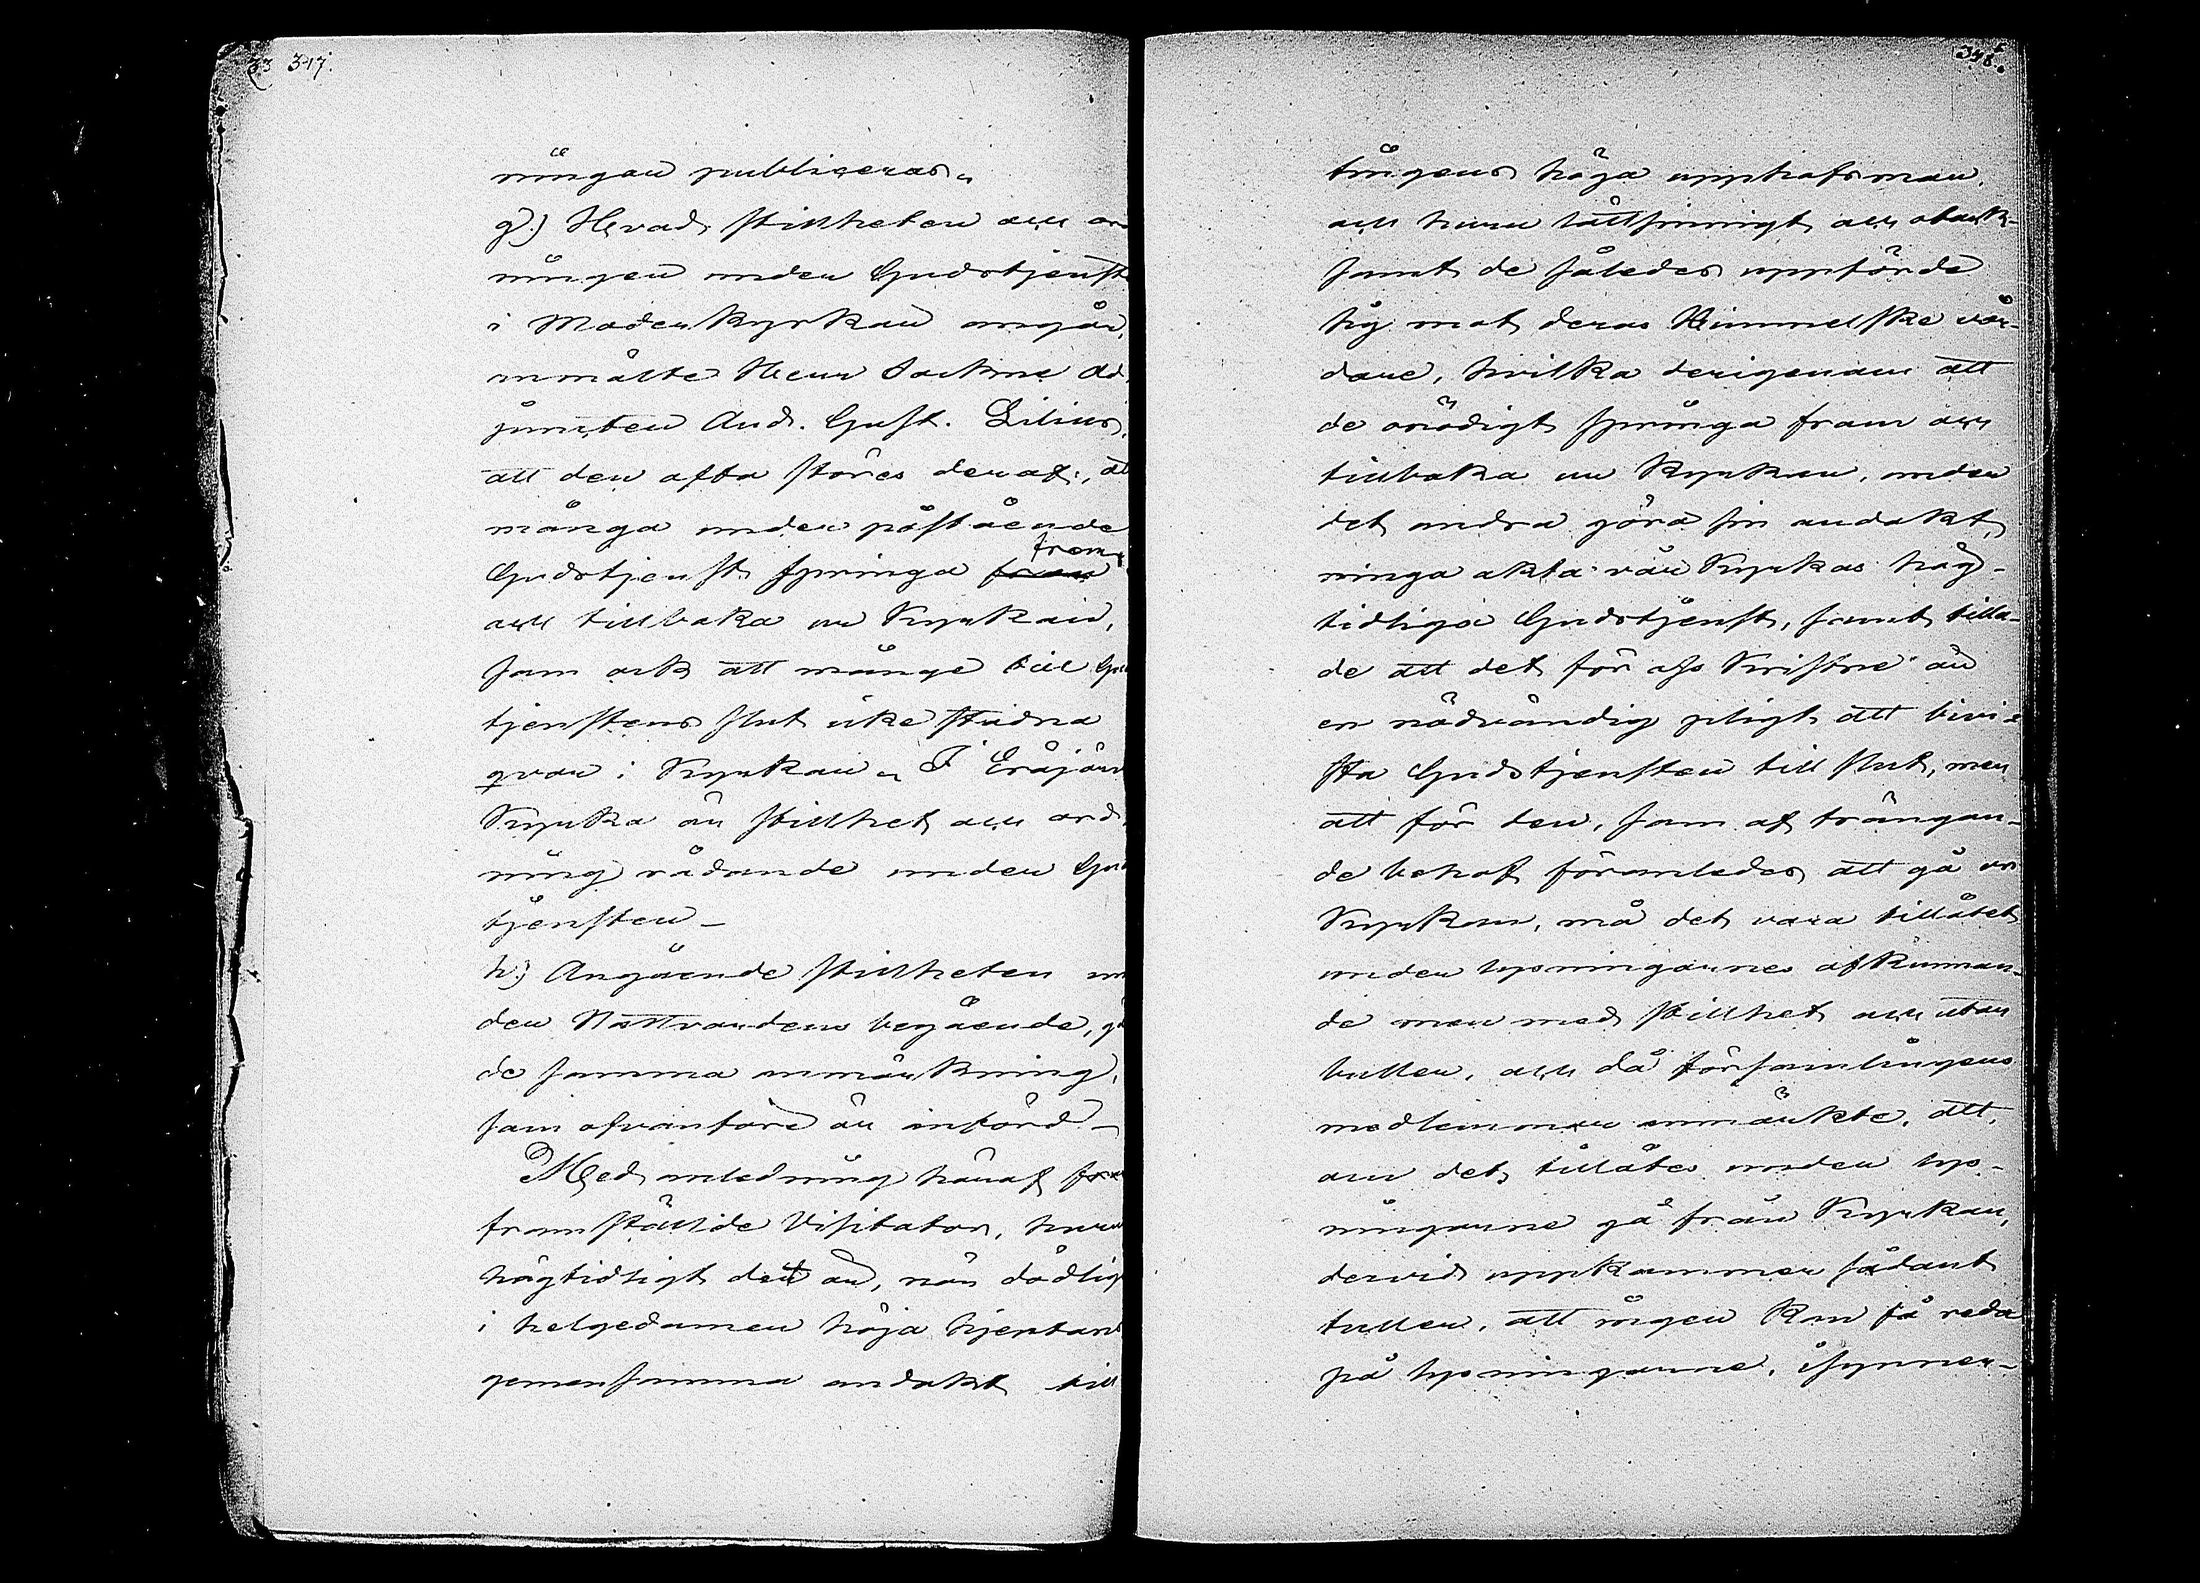 33 347.
ningan publiceras.
g.) Hvad stillheten och ord
ningen under Gudstjenst
i Moderkyrkan angår,
anmälte Herr Sockne Ad-
juncten And. Gust. Lilius,
att den ofta störes deraf, at
många under påstående
Gudstjenst springa fram
och tillbaka ur Kyrkan,
som ock att månge till Gud
tjenstens slut icke stadna
qvar i Kyrkan. I Eräjärvi
Kyrka är stillhet och ord-
ning rådande under Gud
tjensten_
h.) Angående stillheten un
der Nattvardens begående, gäl
de samma anmärkning,
som ofvanföre är införd_
Med anledning häraf
framställde Visitator, huru
högtidligt det är, när dödlig
i helgedomen höja hjertans
gemensamma andakt till
348.
tingens höga upphofsman,
och huru lättsinnigt och otack-
samt de således uppförde
sig mot deras Himmelske vår-
dare, hvilka derigenom att
de onödigt springa fram och
tillbaka ur Kyrkan, under
det andra göra sin andakt,
ringa akta vår Kyrkas hög-
tidliga Gudstjenst, samt tilla-
de att det för oss Kristne är
en nödvändig pligt att bevi-
sta Gudstjensten till slut, men
att för den, som af trängan-
de behof föranledes att gå ur
Kyrkan, må det vara tillåtet
under lysningarnes afkunnan-
de men med stillhet och utan
buller, och då församlingens
medlemmar anmärkte, att,
om det tillåtes under lys-
ningarne gå från Kyrkan,
dervid uppkommer sådant
buller, att ingen kan få reda
på lysningarne, isynner-